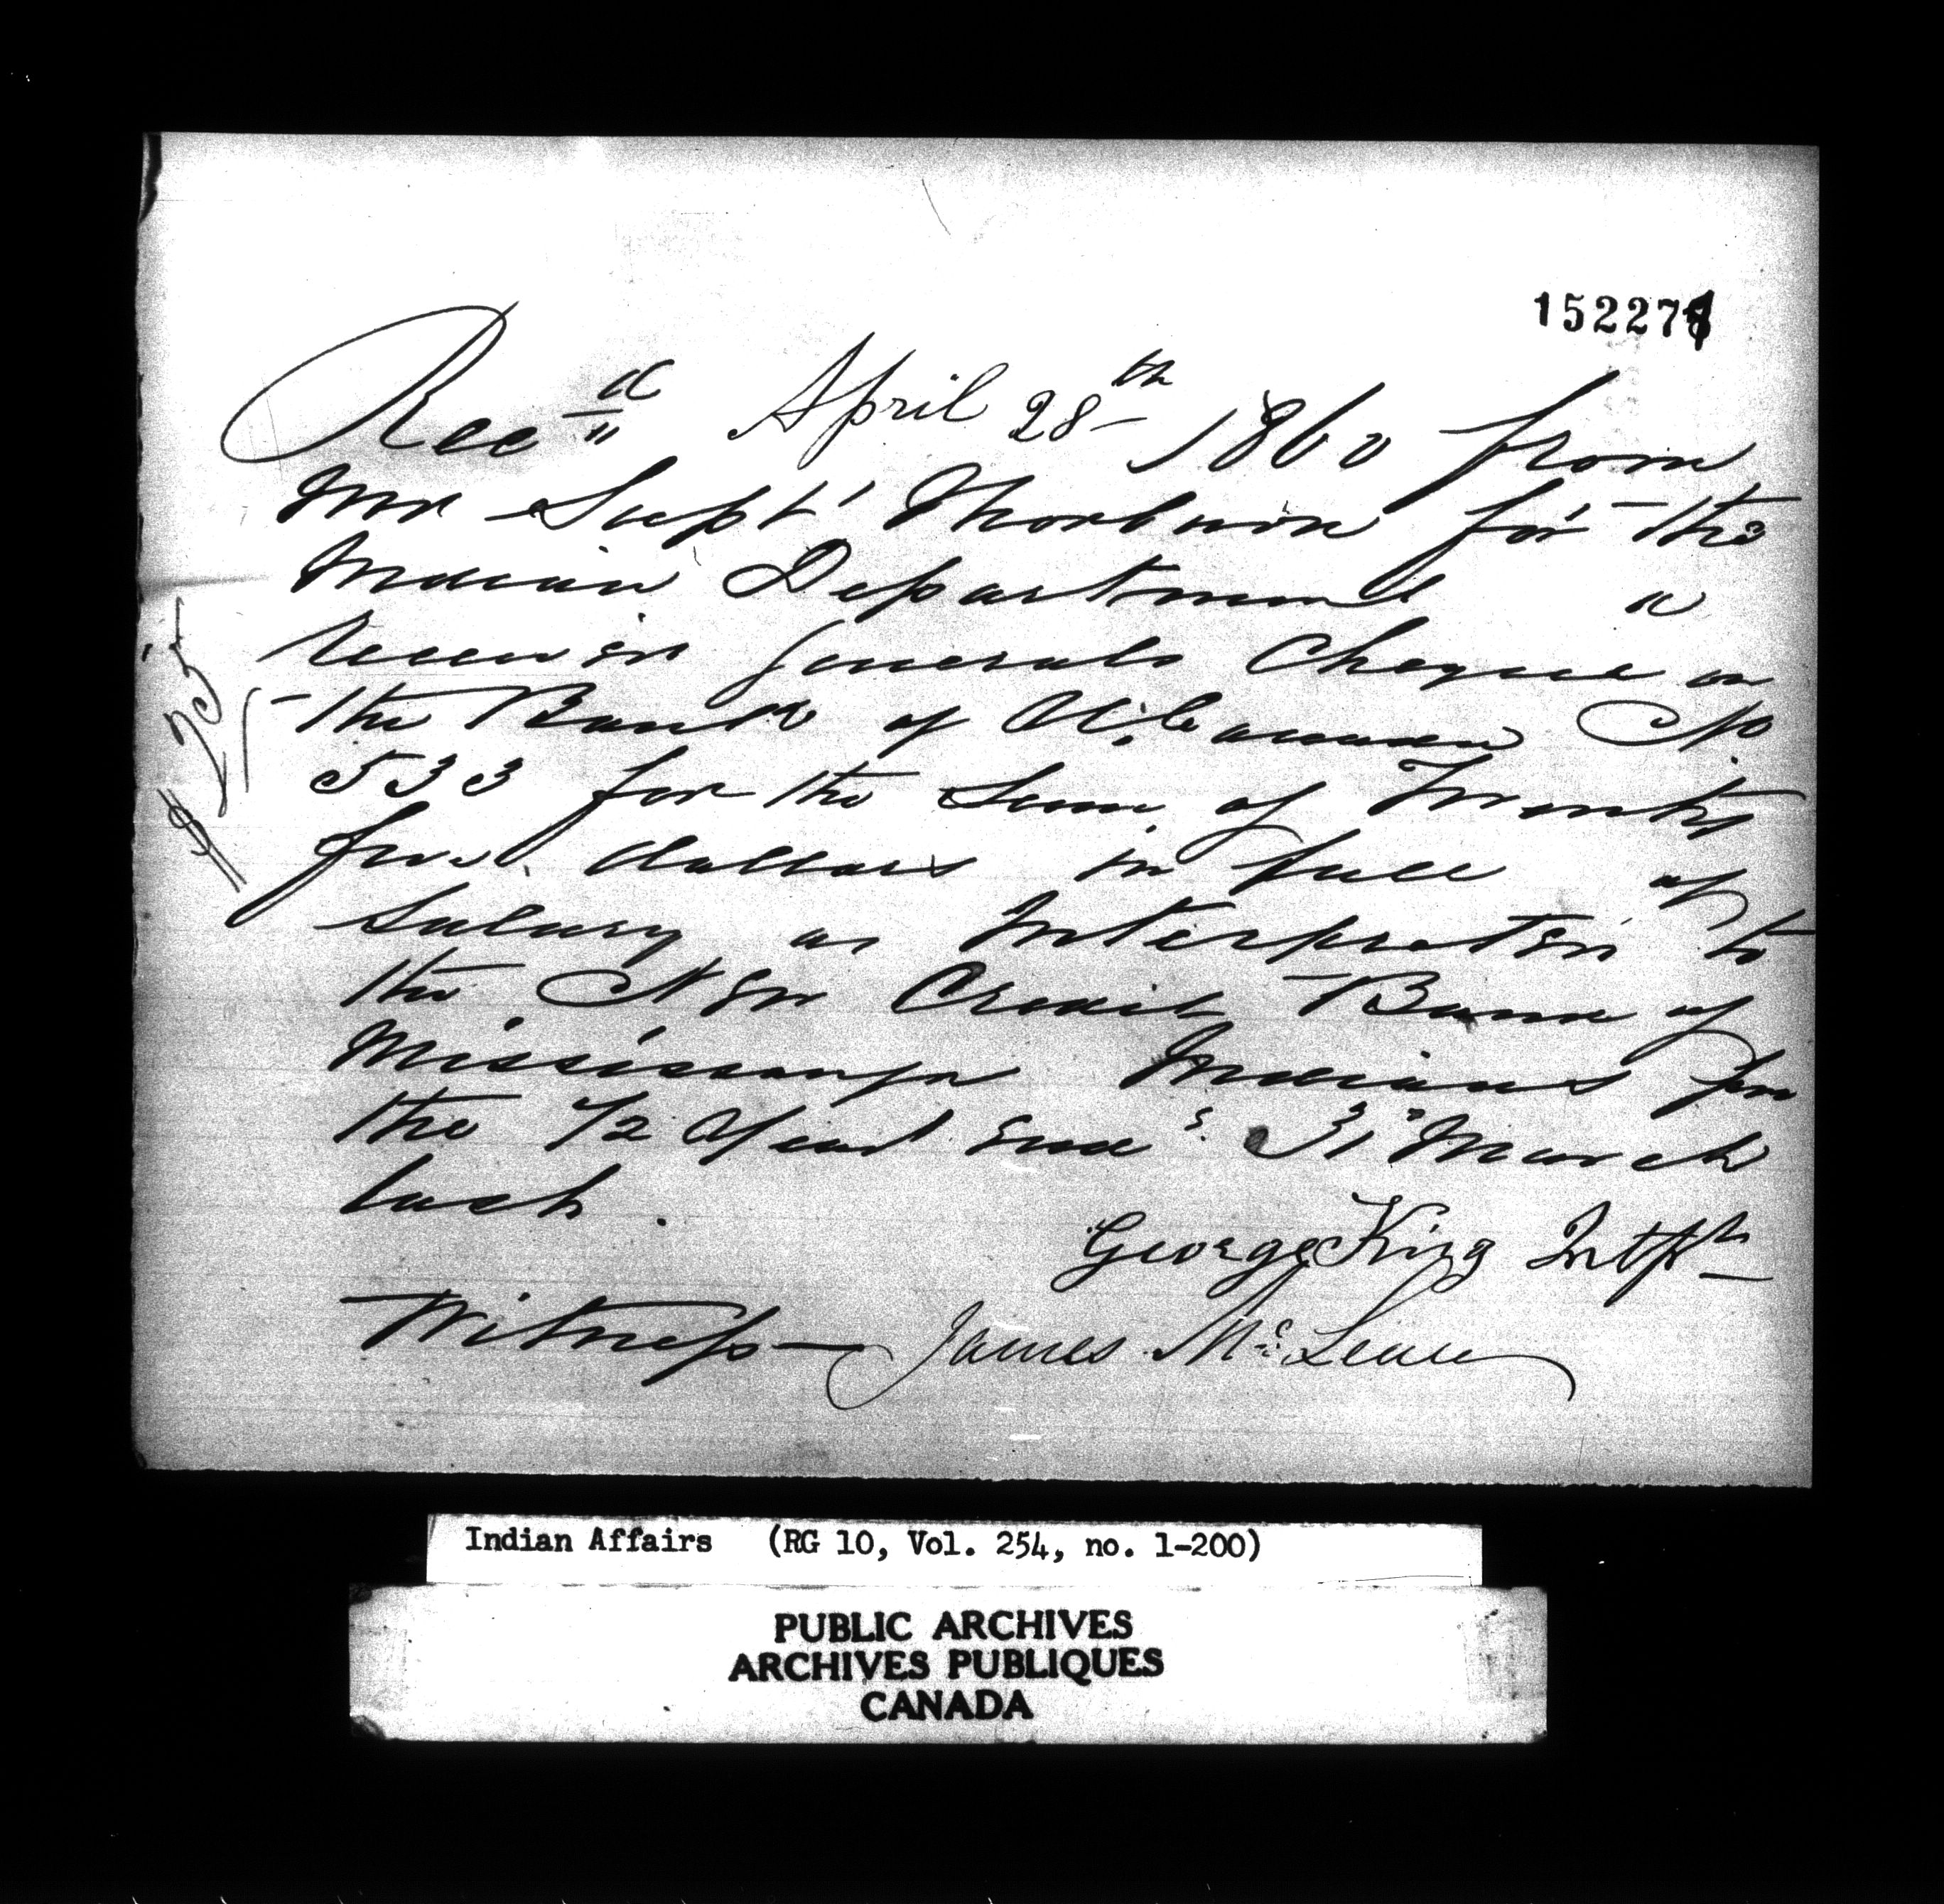 152271
Rec'd April 28th 1860 from
Mr Supt Thorburn for the
Indian Department a
Receiver Generals Cheque on
the Bank of U. Canada No
533 for the Sum of Twenty
five dollars in full of
Salary as Interpreter to
the New Credit Band of
Mississauga Indians for
the 1/2 Year End'g 31 March
last.
$25
George King Intptr
Witness James McLean
Indian Affairs (RG 10, Vol. 254, no. 1-200)
PUBLIC ARCHIVES
ARCHIVES PUBLIQUES
CANADA